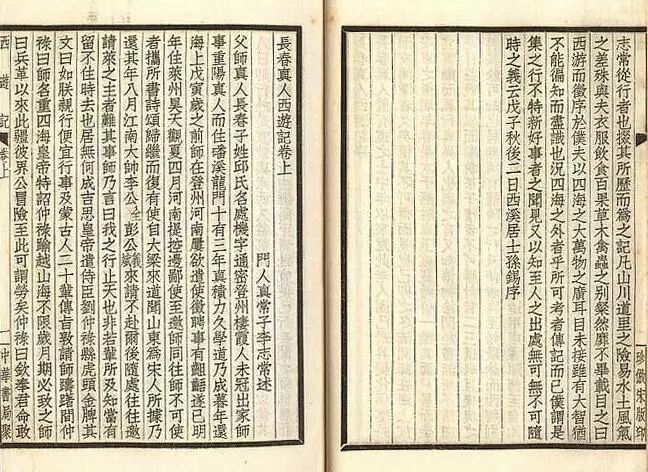 珍倣宋版印
志常從行者也掇其所歷而爲之記凡山川道里之險易水土風氣
之差殊與夫衣服飲食百果草木禽蟲之別粲然靡不畢載目之曰
西游而徵序於僕夫以四海之大萬物之廣耳目未接雖有大智猶
不能徧知而盡識也況四海之外者乎所可考者傳記而已僕謂是
集之行不特新好事者之聞見又以知至人之出處無可無不可隨
時之義云戊子秋後二日西溪居士孫錫序
長春真人西遊記卷上
門人真常子李志常述
父師真人長春子姓邱氏名處機字通密登州棲霞人未冠出家師
事重陽真人而住磻溪龍門十有三年真積力久學道乃成暮年還
海上戊寅歲之前師在登州河南屢欲遣使徵聘事有齟齬遂已明
年住萊州昊天觀夏四月河南提控邊鄙使至邀師同往師不可使
者攜所書詩頌歸繼而復有使自大梁來道聞山東爲宋人所據乃
還其年八月江南大帥李公全彭公義斌來請不赴爾後隨處往往邀
請萊之主者難其事師乃言曰我之行止天也非若輩所及知當有
留不住時去也居無何成吉思皇帝遣侍臣劉仲祿縣虎頭金牌其
文曰如朕親行便宜行事及蒙古人二十輩傳旨敦請師躊躇間仲
祿曰師名重四海皇帝特詔仲祿踰越山海不限歲月期必致之師
曰兵革以來此疆彼界公冒險至此可謂勞矣仲祿曰欽奉君命敢
西遊記 卷上 中華書局聚